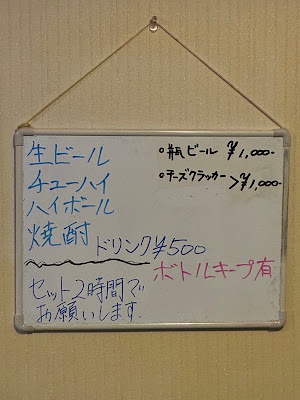 生ビール
チューハイ
ハイボール
焼酎
ドリンク¥500
セット2時間で
お願いします.
○瓶ビール ¥1,000-
○チーズクラッカー >¥1,000-
ボトルキープ有